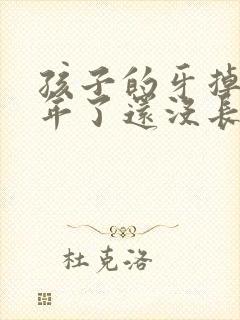 孩子的牙掉
年了還没長
杜克洛